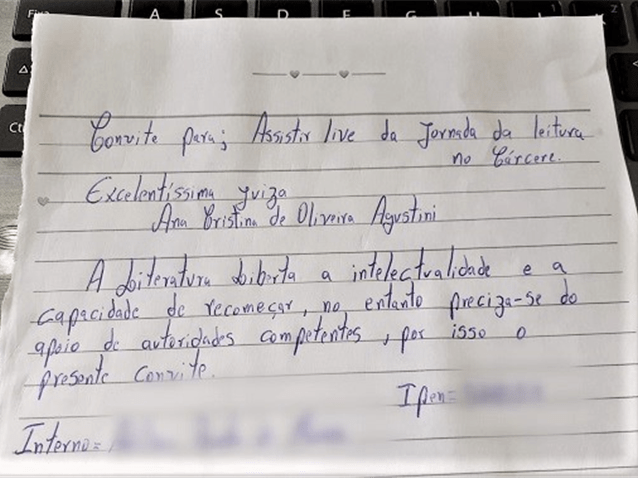 Convite para; Assistir live da Jornada da leitura
no Cárcere.
Excelentíssima yuiza
Ana Cristina de Oliveira Agustini
A Literatura Liberta a intelectualidade e a
capacidade de recomeçar, no entanto preciza-se do
apoio de autoridades competentes, por isso o
presente Convite.
Ipen=
Interno=